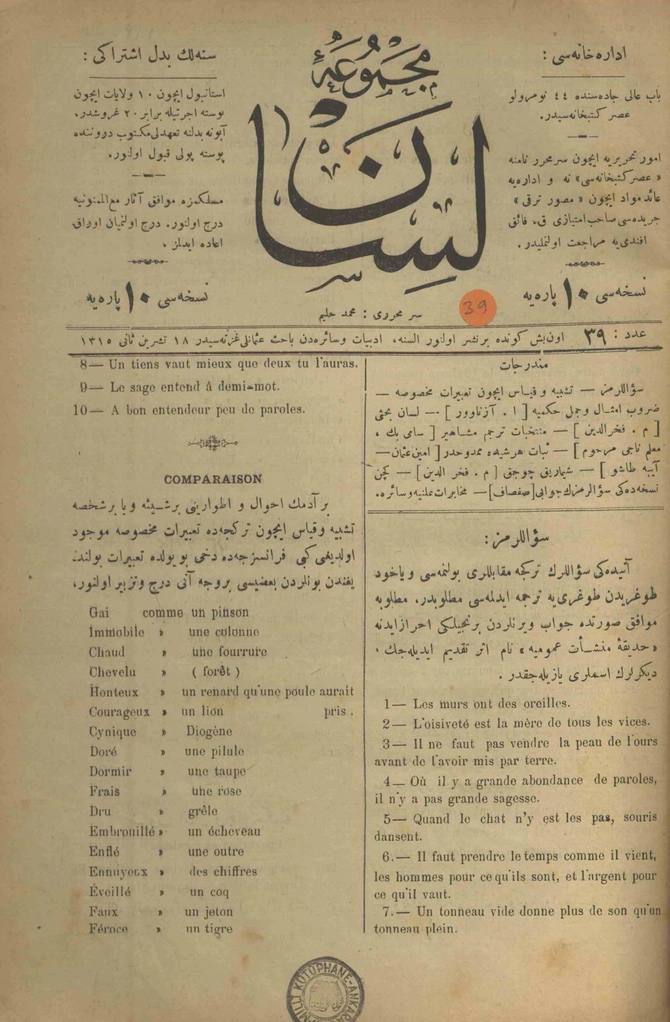 اداره‌خانه‌سی :
باب عالی جاده‌سنده ٤٤ نومرولو
عصر کتبخانه‌سیدر.
امور تحریریه ایچون سر محرر نامنه
« عصر کتبخانه‌سی » نه و اداره‌یه
عائد مواد ایچون « مصور ترقی »
جریده‌سی صاحب امتیازی ق. فائق
افندی‌یه مراجعت اولنملیدر.
نسخه‌سی ١٠ پاره‌یه
مجموعهٔ
لسان
سر محرری : محمد حلیم
39
سنه‌لك بدل اشتراکی :
استانبول ایچون ١٠ ولایات ایچون
پوسته اجرتیله برابر ٢٠ غروشدر.
آبونه بدلنه تعهدلی مکتوب دروننده
پوسته پولی قبول اولنور.
مسلکمزه موافق آثار مع الممنونیه
درج اولنور. درج اولنمیان اوراق
اعاده ایدلمز.
نسخه‌سی ١٠ پاره‌یه
عدد : ٣٩ اون‌بش کونده بر نشر اولنور السنه، ادبیات وسائره‌دن باحث عثمانلی غزته‌سیدر ١٨ تشرین ثانی ١٣١٥
مندرجات
سؤاللرمز — تشبیه و قیاس ایچون تعبیرات مخصوصه —
ضروب امثال وجمل حکمیه [ ا . آزناوور ] — لسان بحثی
[ م . فخرالدین ] — منتخبات تراجم مشاهیر [ سامی بك ،
معلم ناجی مرحوم ] — ثبات هر شیده ممدوحدر [ امین عثمان —
طاشو ] — شیماریق چوجق [ م . فخر الدین ] — کچن
نسخه‌ده‌کی سؤاللرمزك جوابی [ صفصاف ] — مخابرات علنیه وسائره.
سؤاللرمز :
آتیده‌کی سؤاللرك ترکجه مقابللری بولنمه‌سی و یاخود
طوغریدن طوغری‌یه ترجمه ایدلمه‌سی مطلوبدر. مطلوبه
موافق صورتده جواب ویرنلردن برنجیلکی احراز ایدنه
« حدیقهٔ منشأت عمومیه » نام اثر تقدیم ایدیله‌جك ،
دیکرلرك اسملری یازیله‌جقدر .
1— Les murs ont des oreilles.
2— L'oisiveté est la mère de tous les vices.
3— Il ne faut pas vendre la peau de l'ours
avant de l'avoir mis par terre.
4— Où il y a grande abondance de paroles,
il n'y a pas grande sagesse.
5— Quand le chat n'y est les pas, souris
dansent.
6.— Il faut prendre le temps comme il vient,
les hommes pour ce qu'ils sont, et l'argent pour
ce qu'il vaut.
7.— Un tonneau vide donne plus de son qu'un
tonneau plein.
8— Un tiens vaut mieux que deux tu l'auras.
9— Le sage entend â demi-mot.
10— A bon entendeur peu de paroles.
COMPARAISON
بر آدمك احوال و اطوارینی بر شیئه و یا بر شخصه
تشبیه وقیاس ایچون ترکجه‌ده تعبیرات مخصوصه موجود
اولدیغی کبی فرانسزجه‌ده دخی بو یولده تعبیرات بولند.
یغندن بونلردن بعضیسی بروجه آتی درج وتزبیر اولنور.
Gai comme un pinson
Immobile » une colonne
Chaud » une fourrure
Chevelu » ( forêt )
Honteux » un renard qu'une poule aurait
pris .
Courageux » un lion
Cynique » Diogène
Doré » une pilule
Dormir » une taupe
Frais » une rose
Dru » grêle
Embrouillé » un écheveau
Enflé » une outre
Ennuyeux » des chiffres
Éveillé » un coq
Faux » un jeton
Féroce » un tigre
MİLLİ KÜTÜPHANE-ANKARA